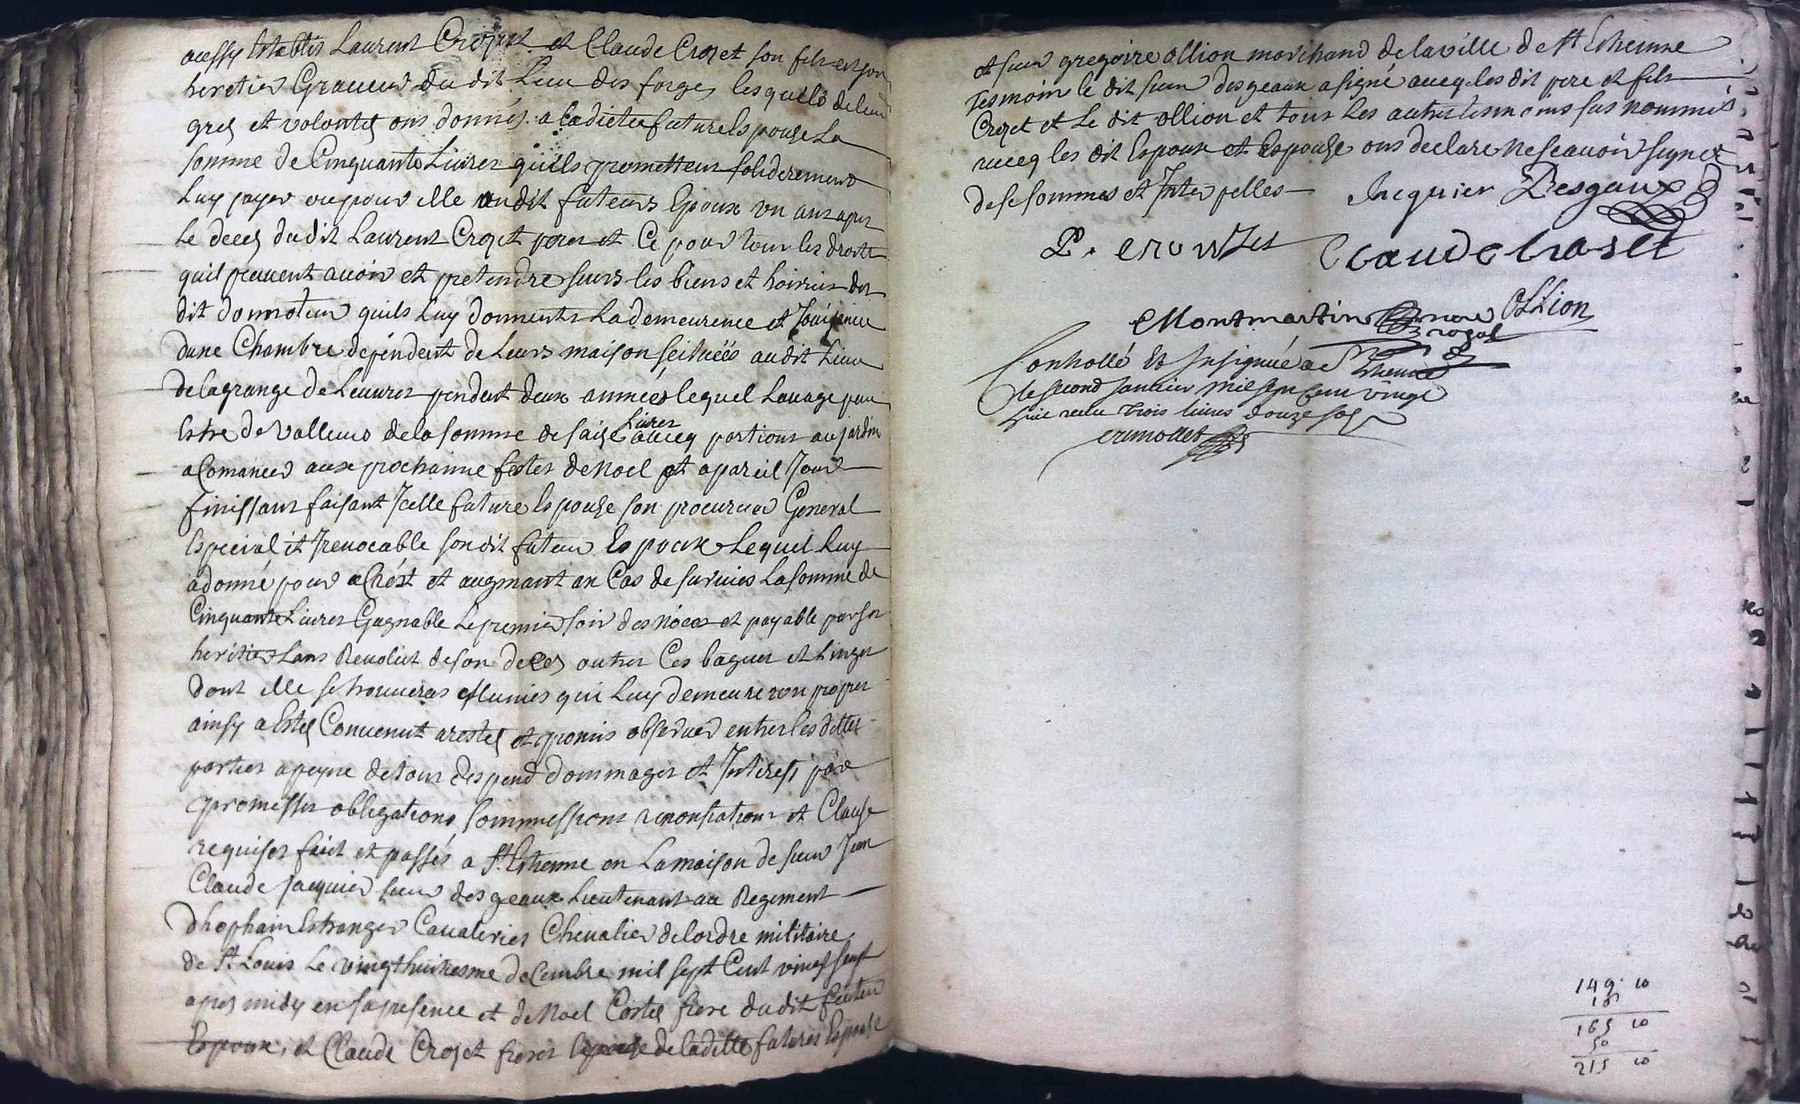 aussy establis Laurent Crozet et Claude Crozet son fils et son
heretier Graveur du dit Lieu des forges lesquels de leur
grez et volontez ont donnés a ladicte future Espouze La
somme de Cinquante Livres quils promettent soliderement
Luy payer ou pour elle au dit futeurs Epoux un ans apres
Le deces du dit Laurent Crozet perre et Ce pour tous les droits
quil peuvent avoir et pretendre surs les biens et hoiries des
dit donnateur quils Luy donnents La demeurence et Jouisence
dune Chambre dépendent de Leurs maison scituéés audit Lieu
de lagrange de Leuvres pendent deux années lequel Louage peu
Estre de valleurs de la somme de saize Livres avecq portions au jardin
a Comancer aux prochainne festes de Noel et a pareil Jour
finissant faisant Jcelle future Espouze son procureur General
Especial et Jrevocable son dit futeur Espoux Lequel Luy
a donné pour et augmant an Cas de survies La somme de
Cinquante Livres Gagnable Le premier soir des nôces et payable par ses
heritiers Lans Revolut de son decez outres Ces bagues et Linges
dont elle se trouveras Munies qui Luy demeureron propres
ainsy a Estez Convenut arestez et promis observer entres les dittes
parties a peyne de tous despend dommages et Jnterest par
promesses obligations, sommissions renontiations et Clause
requises faict et passés a St Estienne en La maison de sieur Jean
Claude Jacquier sieur desgeaux Lieutenant au Regiment
dhophain Estranger Cavaleries Chevalier de lordre militaire
de St Louis Le vingt huitiesme decembre mil sept Cent vingt sept
apres midy en sa presence et de Noel Cortes frere du dit futeur
Espoux, et Claude Crozet freres de laditte future Espouse
et sieur gregoire ollion marchand de la ville de St Estienne
Tesmoins le dit sieur desgeaux a signé avecq les dit pere et fils
Crozet et Le dit ollion et tous Les autres tesmoins sus nommés
avecq les dit Espoux et Espouze ons declare Ne scavoir signer
de ce sommes et Jnterpelles Jacquier Desgaux
L. crouzet Claude Craset
Montmartin nore Ollion
royal
Controllé Et Insignué a St Etienne
le second janvier mil sept cent vingt
huit recu trois livres douze sols
crimollet
149. 10
16
165 10
50
215 10